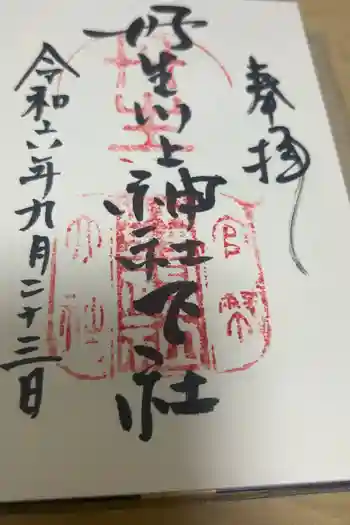 奉拝
丹生川上神社下社
令和六年九月二十三日
官幣
大社